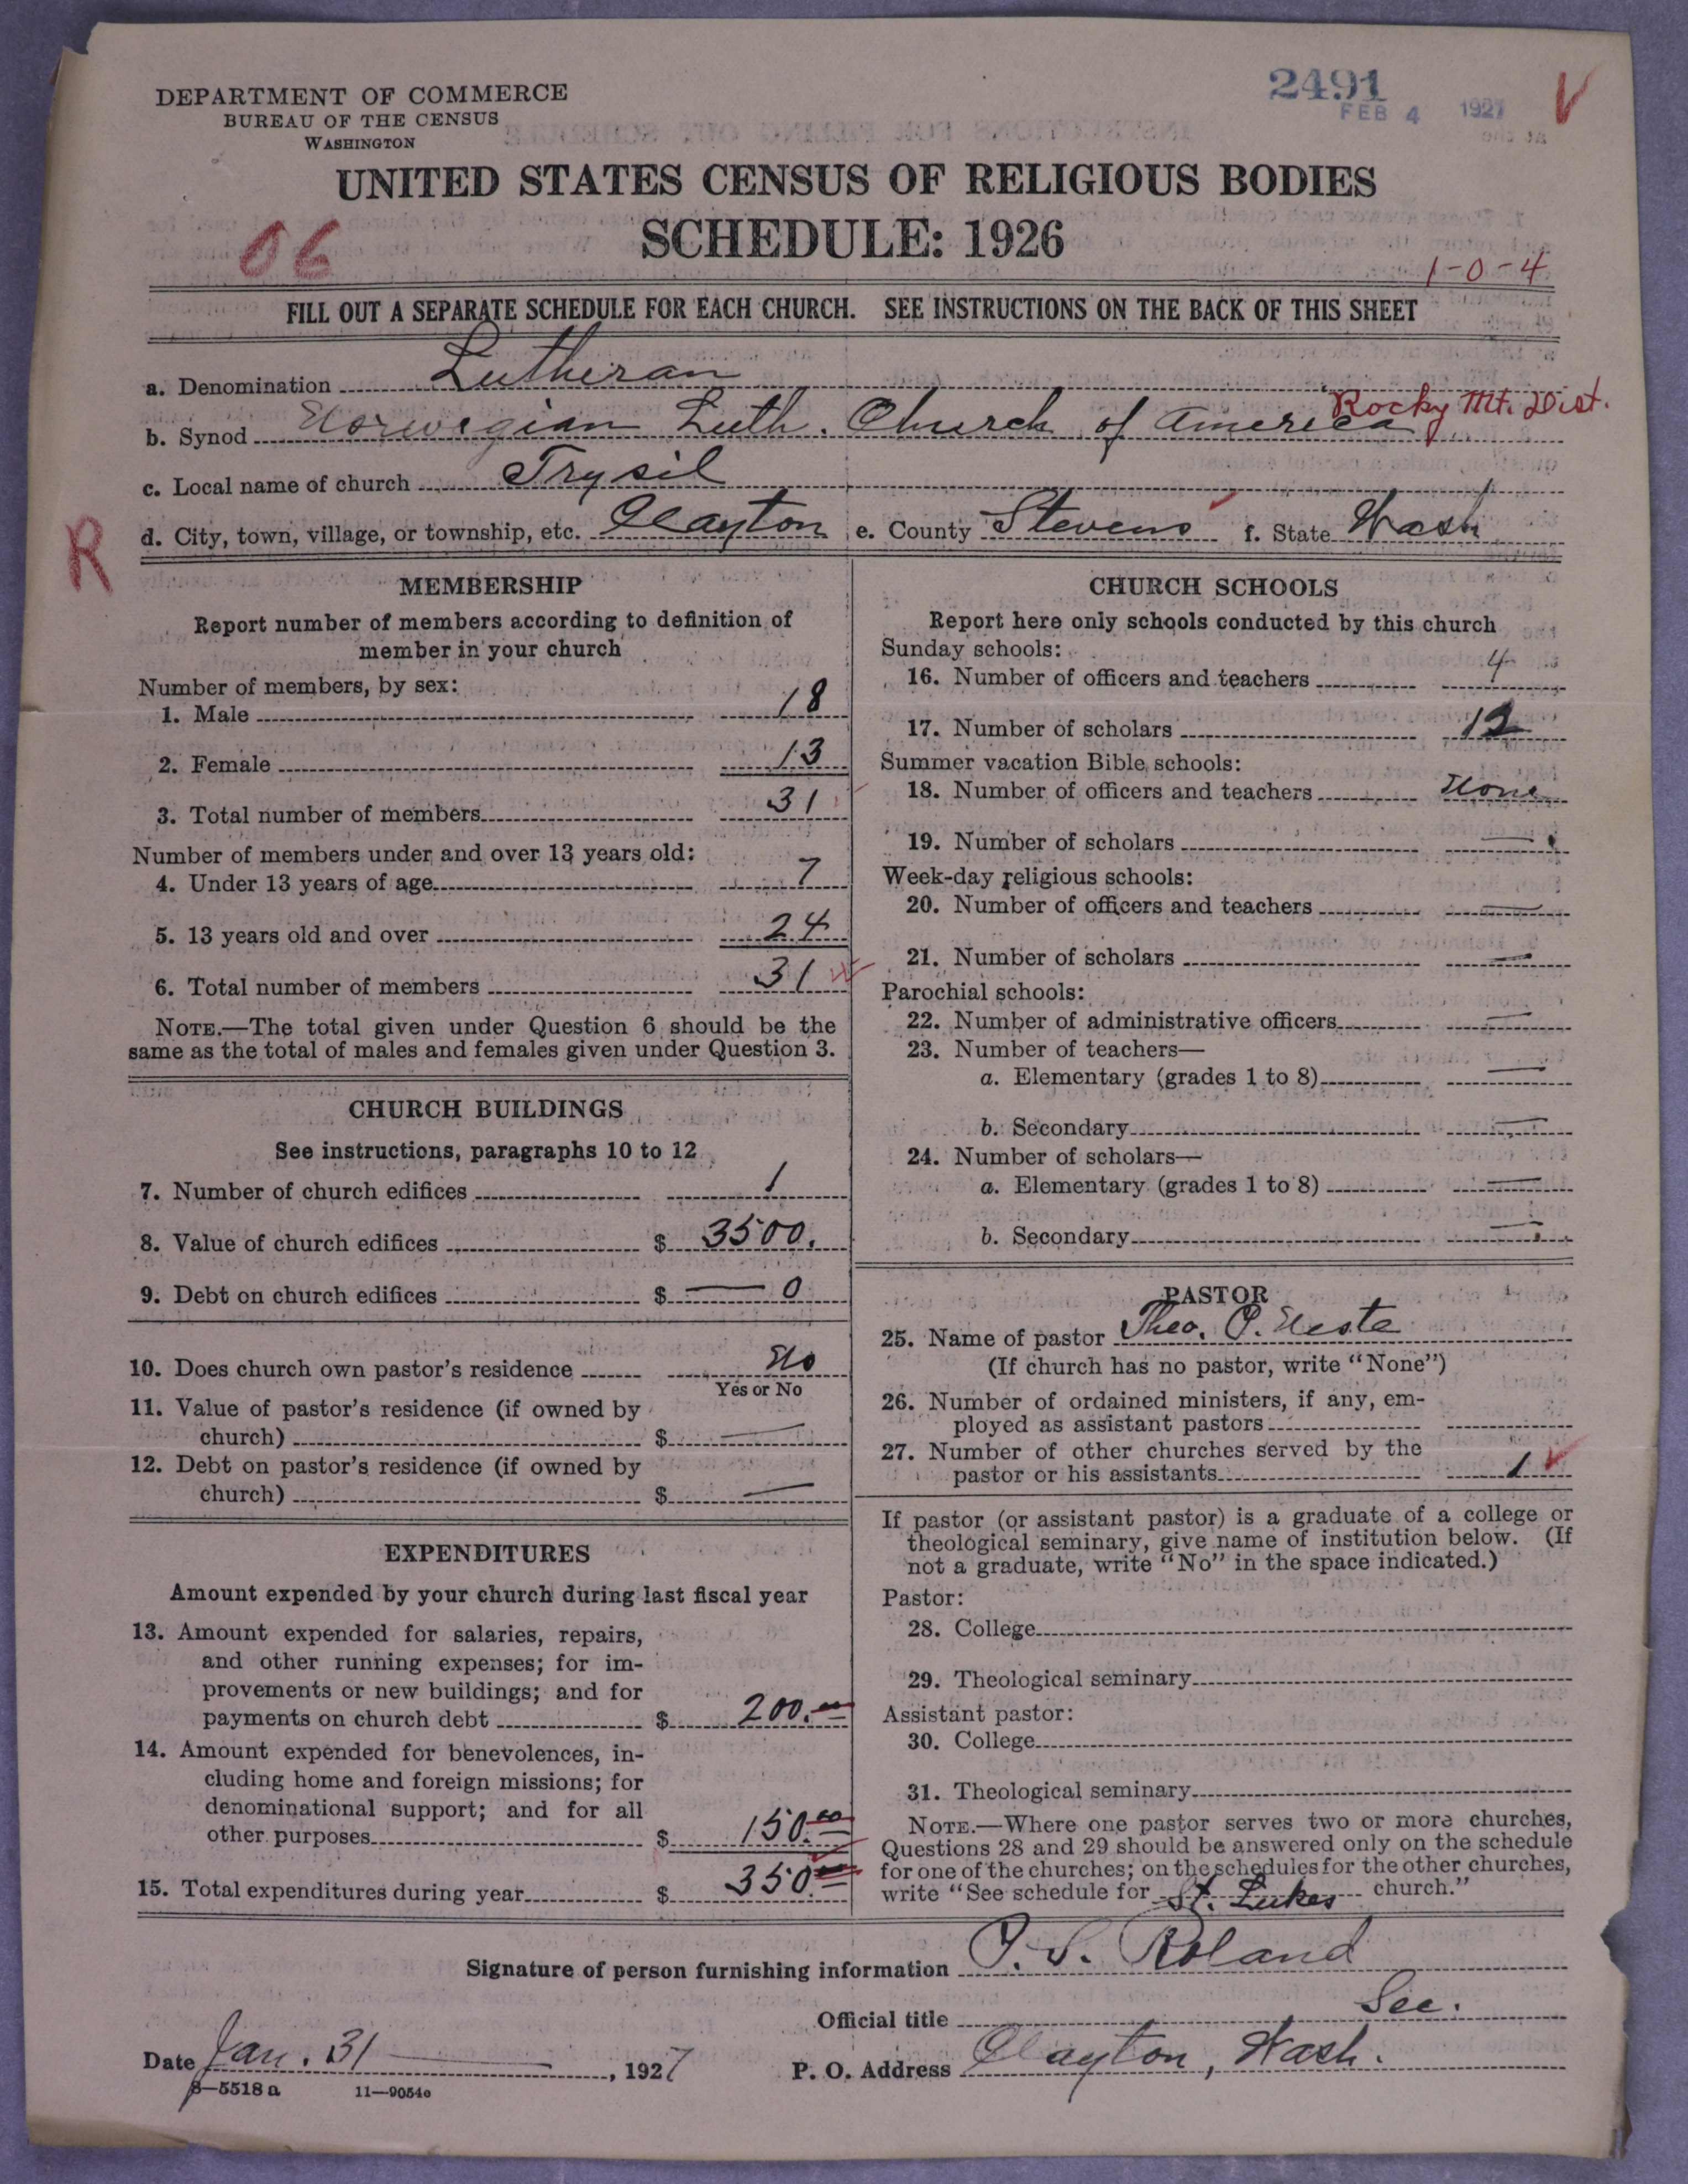 DEPARTMENT OF COMMERCE
BUREAU OF THE CENSUS
WASHINGTON
2491
FEB 4 1927 V
UNITED STATES CENSUS OF RELIGIOUS BODIES
SCHEDULE: 1926
06
1-0-4
FILL OUT A SEPARATE SCHEDULE FOR EACH CHURCH. SEE INSTRUCTIONS ON THE BACK OF THIS SHEET
a. Denomination Lutheran
Rocky Mt. Dist.
b. Synod Norwegian Luth. Church of America
c. Local name of church Trysil
d. City, town, village, or township, etc. Clayton e. County Stevens f. State Wash
R
MEMBERSHIP
Report number of members according to definition of
member in your church
Number of members, by sex:
1. Male 18
2. Female 13
3. Total number of members 31
Number of members under and over 13 years old:
4. Under 13 years of age 7
5. 13 years old and over 24
6. Total number of members 31
NOTE.—The total given under Question 6 should be the
same as the total of males and females given under Question 3.
CHURCH BUILDINGS
See instructions, paragraphs 10 to 12
7. Number of church edifices 1
8. Value of church edifices $ 3500.
9. Debt on church edifices $ — 0
10. Does church own pastor's residence No
Yes or No
11. Value of pastor's residence (if owned by
church) $ —
12. Debt on pastor's residence (if owned by
church) $ —
EXPENDITURES
Amount expended by your church during last fiscal year
13. Amount expended for salaries, repairs,
and other running expenses; for im-
provements or new buildings; and for
payments on church debt $ 200.00
14. Amount expended for benevolences, in-
cluding home and foreign missions; for
denominational support; and for all
other purposes $ 150.00
15. Total expenditures during year $ 350.00
CHURCH SCHOOLS
Report here only schools conducted by this church
Sunday schools:
16. Number of officers and teachers 4
17. Number of scholars 12
Summer vacation Bible schools:
18. Number of officers and teachers None
19. Number of scholars —
Week-day religious schools:
20. Number of officers and teachers —
21. Number of scholars —
Parochial schools:
22. Number of administrative officers —
23. Number of teachers—
a. Elementary (grades 1 to 8) —
b. Secondary —
24. Number of scholars—
a. Elementary (grades 1 to 8) —
b. Secondary —
PASTOR
25. Name of pastor Theo. P. Neste
(If church has no pastor, write "None")
26. Number of ordained ministers, if any, em-
ployed as assistant pastors
27. Number of other churches served by the
pastor or his assistants 1
If pastor (or assistant pastor) is a graduate of a college or
theological seminary, give name of institution below. (If
not a graduate, write "No" in the space indicated.)
Pastor:
28. College
29. Theological seminary
Assistant pastor:
30. College
31. Theological seminary
NOTE.—Where one pastor serves two or more churches,
Questions 28 and 29 should be answered only on the schedule
for one of the churches; on the schedules for the other churches,
write "See schedule for St. Lukes church."
Signature of person furnishing information Roland
Official title Sec.
Date Jan. 31 —, 1927 P. O. Address Clayton, Wash.
8—5518 a 11—9054e